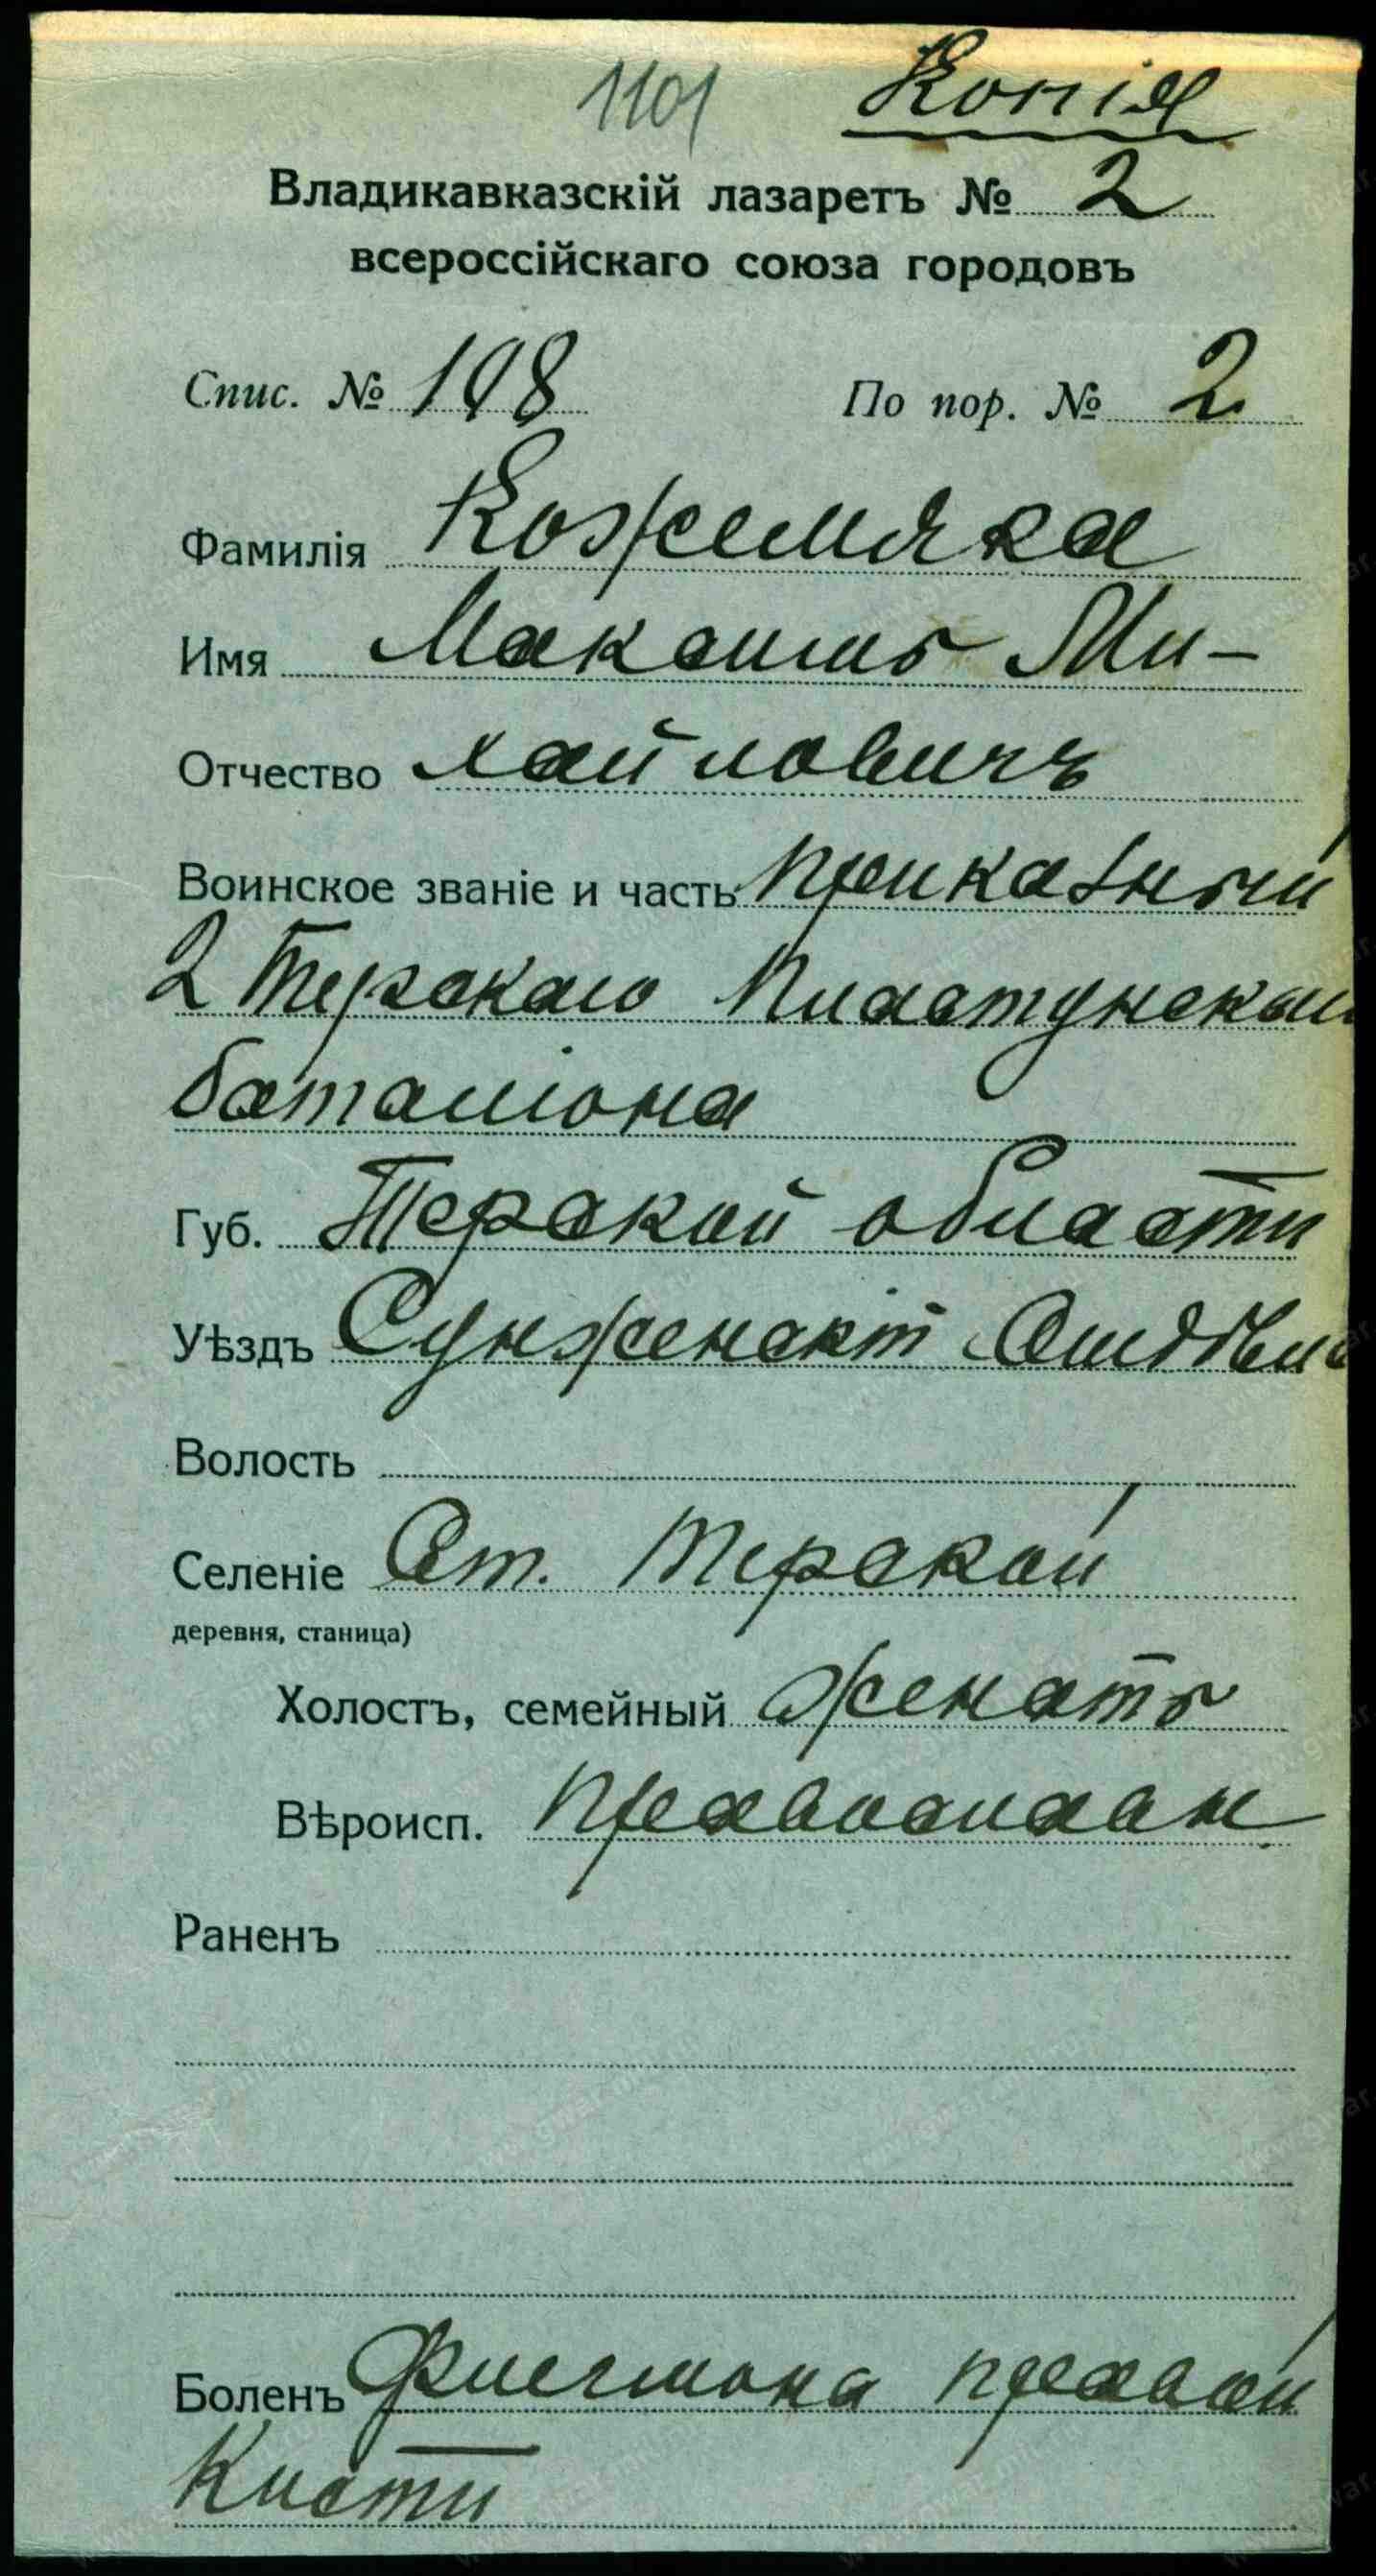 1101 Копія
Владикавказскій лазаретъ № 2
всероссійскаго союза городовъ
Спис. № 198 По пор. № 2
Фамилія Кожемяка
Имя Максимъ Ми-
Отчество хайловичъ
Воинское званіе и часть Приказный
2 Терскаго Пластунскаго
баталіона
Губ. Терской области
Уѣздъ Сунженскій
Волость
Селеніе Ст. Терской
деревня, станица)
Холостъ, семейный женатъ
Вѣроисп. Православн
Раненъ
Боленъ Флегмона правой
Кисти